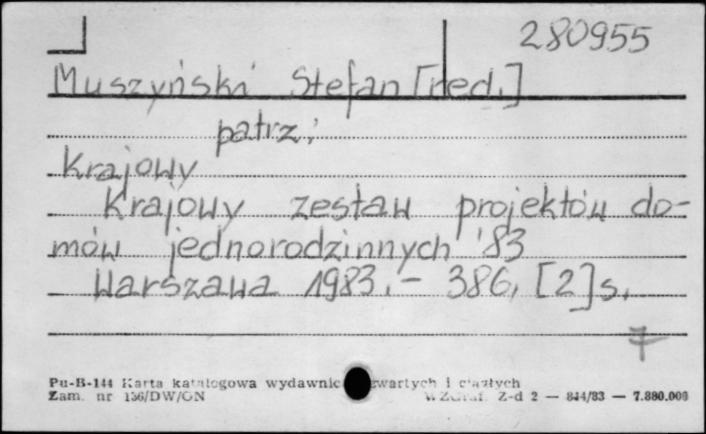 280955
Muszyński Stefan [red.]
patrz:
Krajowy
Krajowy zestaw projektów do-
mów jednorodzinnych '83
Warszawa 1983. - 386, [2] s.
Pu-B-144 Karta katalogowa wydawnic zwartych i ciągłych
Zam. nr 156/DW/GN Z-d 2 — 844/83 — 7.880.000